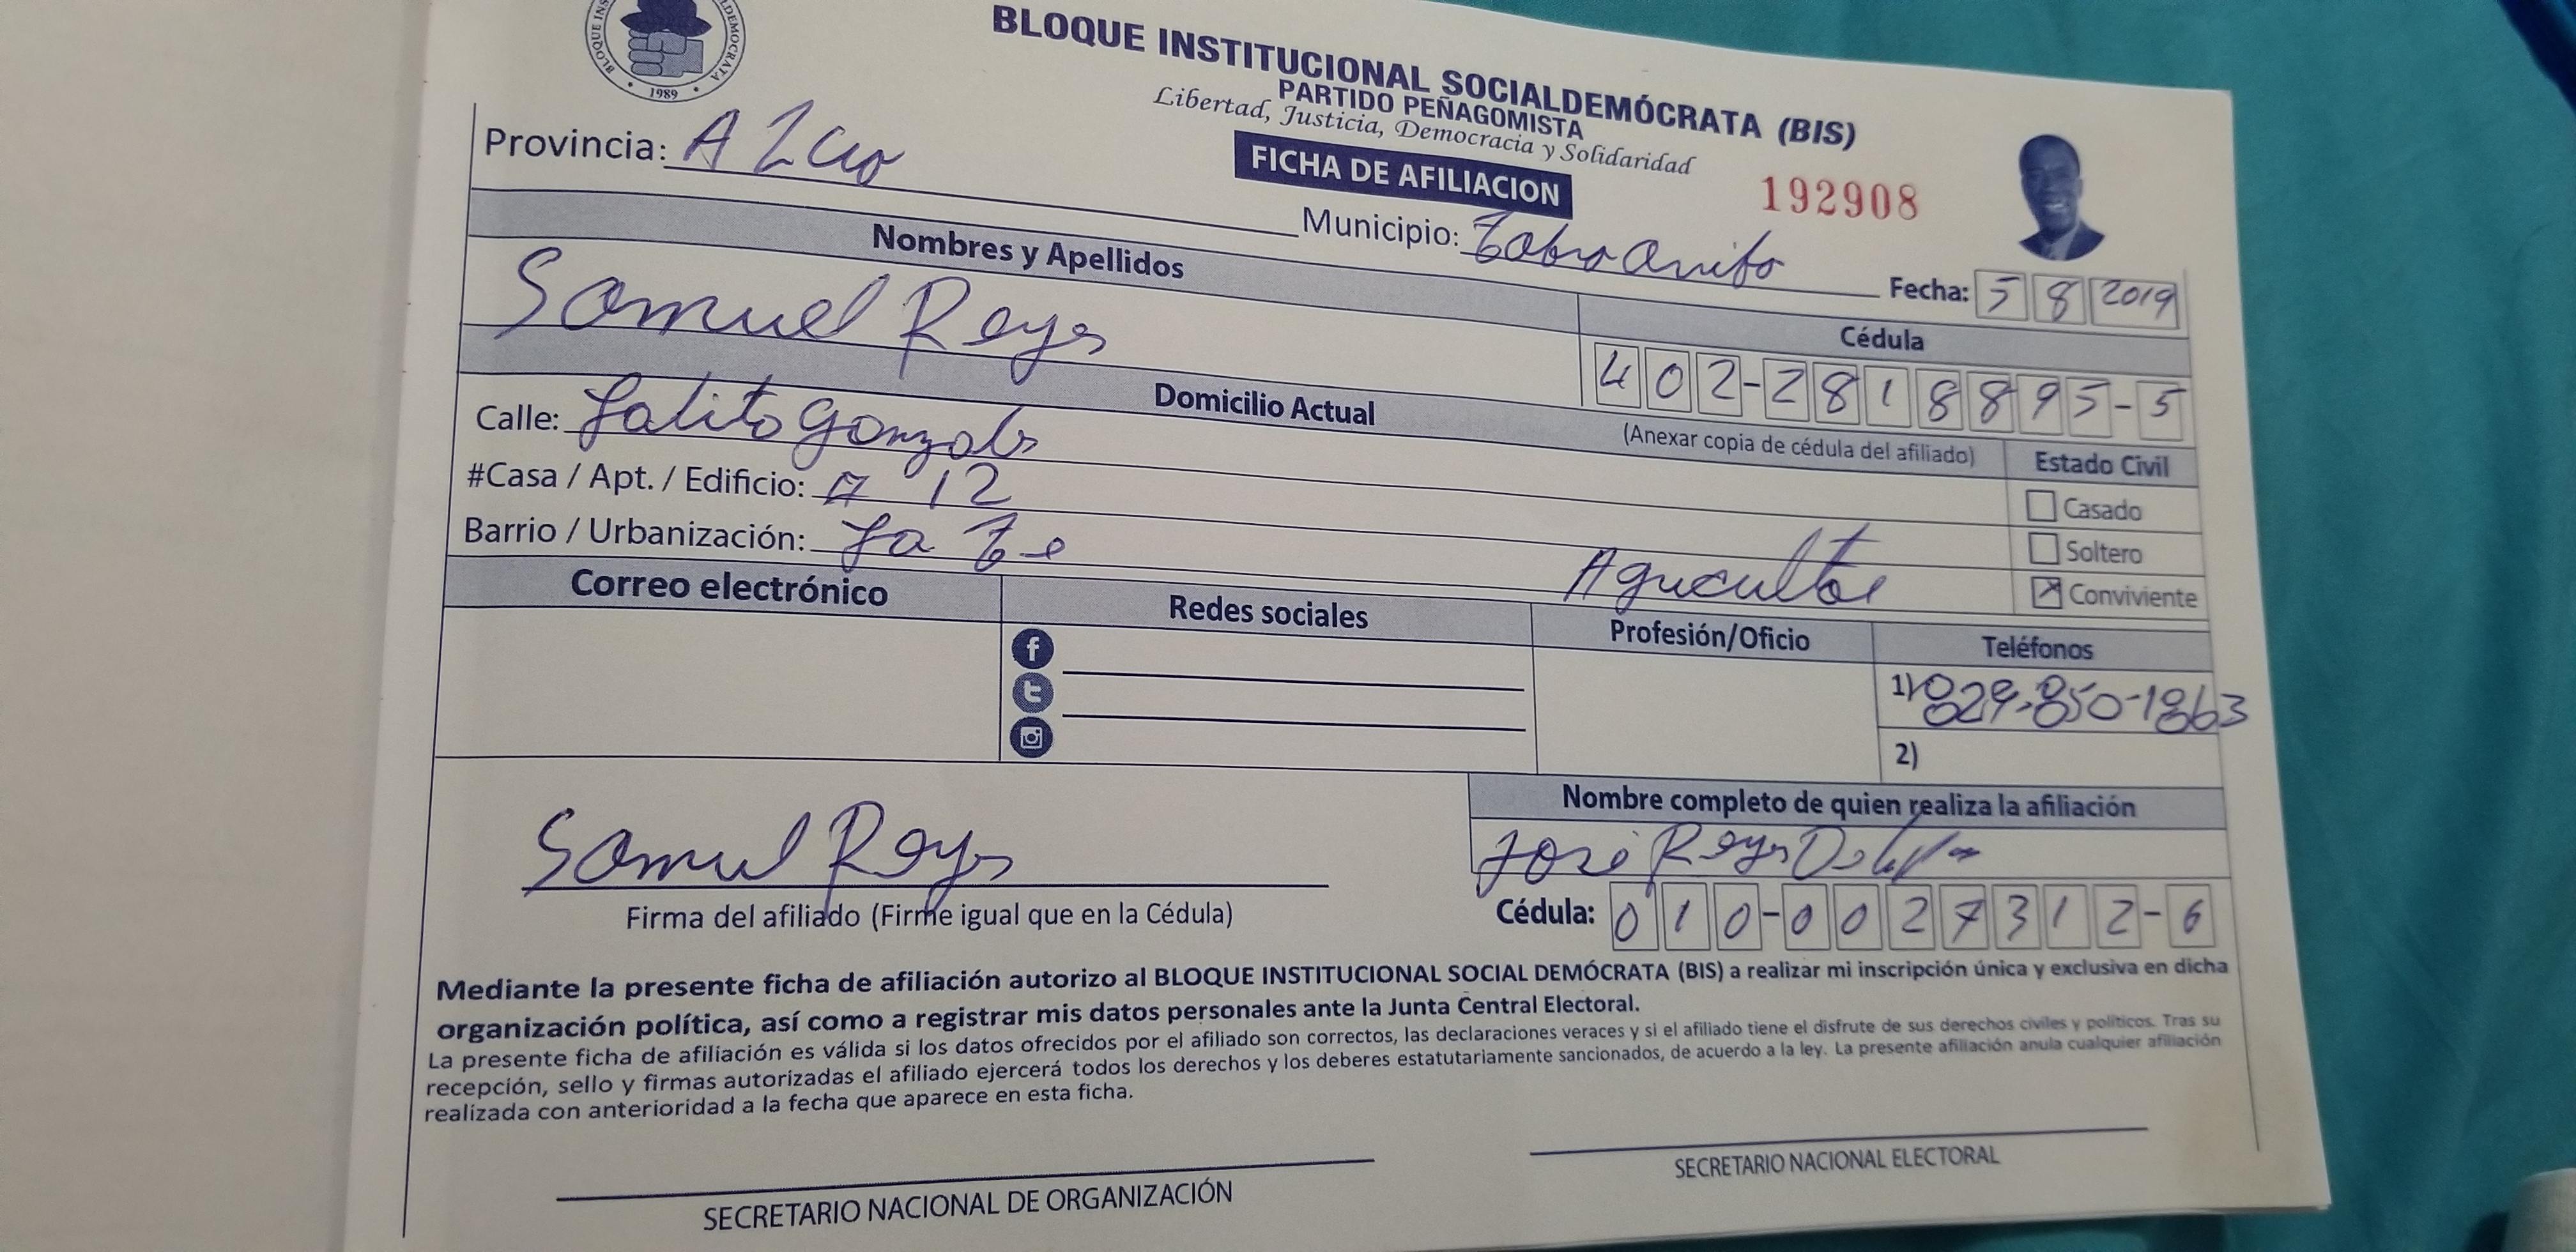 BLOQUE INSTITUCIONAL SOCIALDEMÓCRATA (BIS)
PARTIDO PEÑAGOMISTA
Libertad, Justicia, Democracia y Solidaridad
FICHA DE AFILIACION
192908
1989
Provincia: AZUA
Municipio:
Fecha: 5 8 2019
Nombres y Apellidos
Samuel Reyes
Cédula
402-2818895-5
(Anexar copia de cédula del afiliado)
Domicilio Actual
Calle:
#Casa / Apt. / Edificio: # 12
Barrio / Urbanización:
Estado Civil
Casado
Soltero
Conviviente
Correo electrónico
Redes sociales
Agricultor
Profesión/Oficio
Teléfonos
1) 829-850-1863
2)
Samuel Reyes
Firma del afiliado (Firme igual que en la Cédula)
Nombre completo de quien realiza la afiliación
José Reyes
Cédula: 010-0027312-6
Mediante la presente ficha de afiliación autorizo al BLOQUE INSTITUCIONAL SOCIAL DEMÓCRATA (BIS) a realizar mi inscripción única y exclusiva en dicha
organización política, así como a registrar mis datos personales ante la Junta Central Electoral.
La presente ficha de afiliación es válida si los datos ofrecidos por el afiliado son correctos, las declaraciones veraces y si el afiliado tiene el disfrute de sus derechos civiles y políticos. Tras su
recepción, sello y firmas autorizadas el afiliado ejercerá todos los derechos y los deberes estatutariamente sancionados, de acuerdo a la ley. La presente afiliación anula cualquier afiliación
realizada con anterioridad a la fecha que aparece en esta ficha.
SECRETARIO NACIONAL DE ORGANIZACIÓN
SECRETARIO NACIONAL ELECTORAL